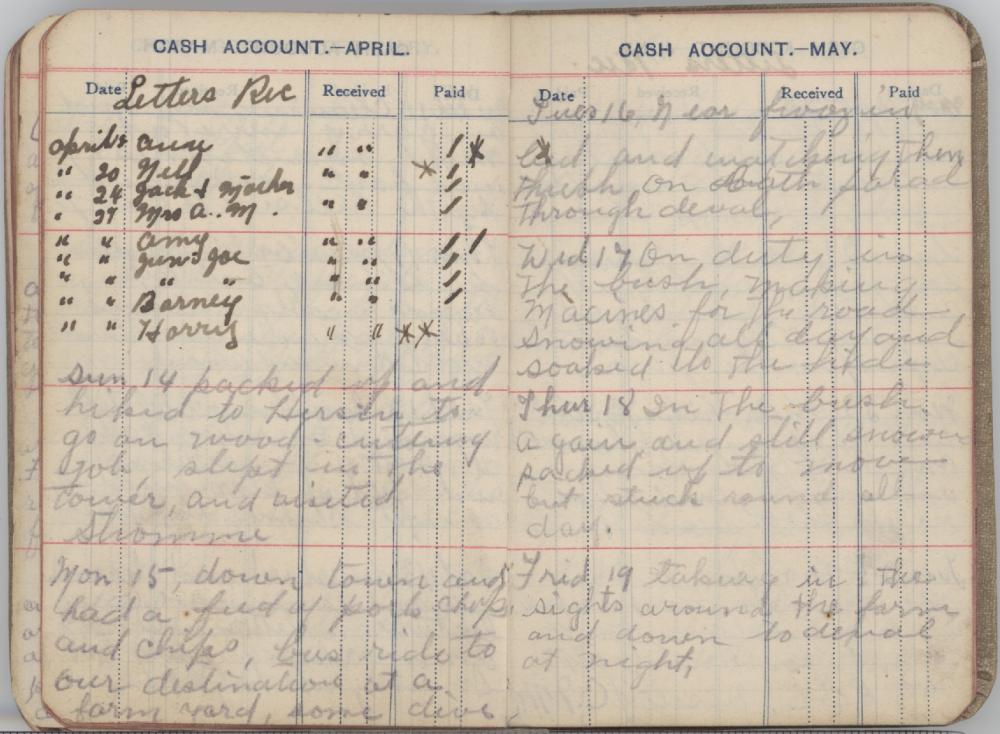 CASH ACCOUNT.—APRIL.
Date Letters Rec Received Paid
april 8 amy " " / *
" 20 Nell " " * /
" 24 Jack & Mother /
" 27 Mrs A. M. " " /
" " amy " " / /
" " Jim & Joe " " /
" " " " " " /
" " Barney " " /
" " Harris " " **
Sun 14 packed up and
hiked to to
go on wood-cutting
job slept in the
tower, and visited
Mon 15, down town and
had a feed of pork chops
and chips, bus ride to
our destination at a
farm yard, some dive
CASH ACCOUNT.—MAY.
Date Received Paid
Tues 16, Near froze in
bed, and watching them
thresh, on parad
through
Wed 17 On duty in
the bush, making
for the road
snowing all day and
soaked to the hide
Thur 18 In the bush
again and still snowin
packed up to move
but stuck round all
day.
Frid 19 taking in the
sights around the farm
and down to
at night,